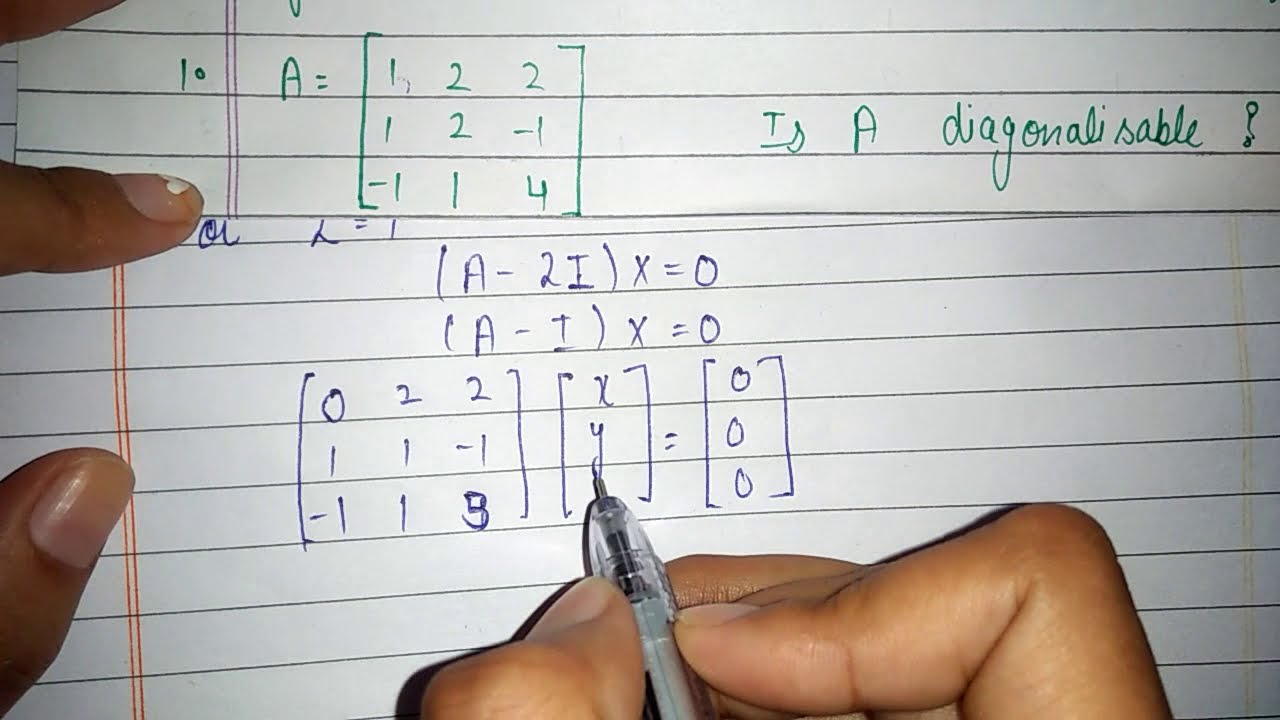 1. A = [1, 2 2
1 2 -1
-1 1 4] Is A diagonalisable ?
λ = 1
(A - λI) X = 0
(A - I) X = 0
[0 2 2] [x] = [0]
[1 1 -1] [y] [0]
[-1 1 3] [0]